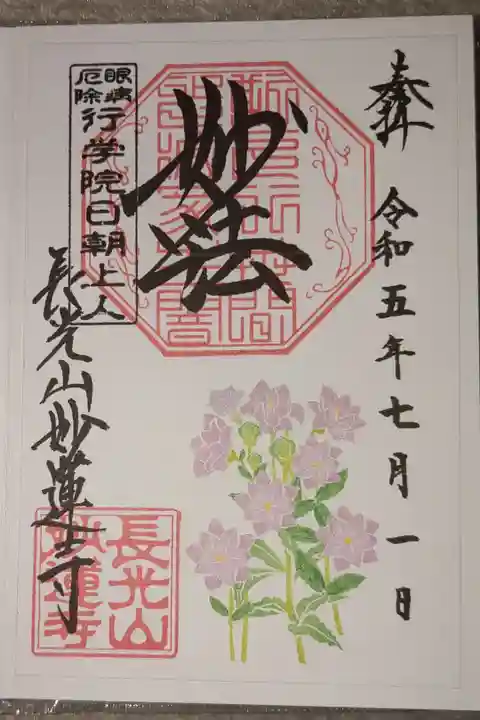 奉拝
令和五年七月一日
妙法
眼病
厄除
行学院日朝上人
長光山妙蓮寺
長光山
妙蓮寺